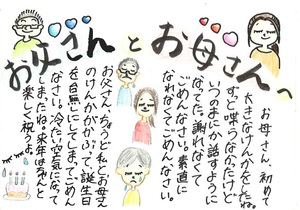 お父さんとお母さんへ
お母さん、初めて
大きなけんかをしたね。
ずっと喋らなかったけど
いつのまにか話すように
なってた。謝れなくて
ごめんなさい。素直に
なれなくてごめんなさい。
お父さん、ちょうど私とお母さん
のけんかがかぶって、誕生日
を台無しにしてしまってごめん
なさい。冷たい空気になって
しまったね。来年はちゃんと
楽しく祝うよ。